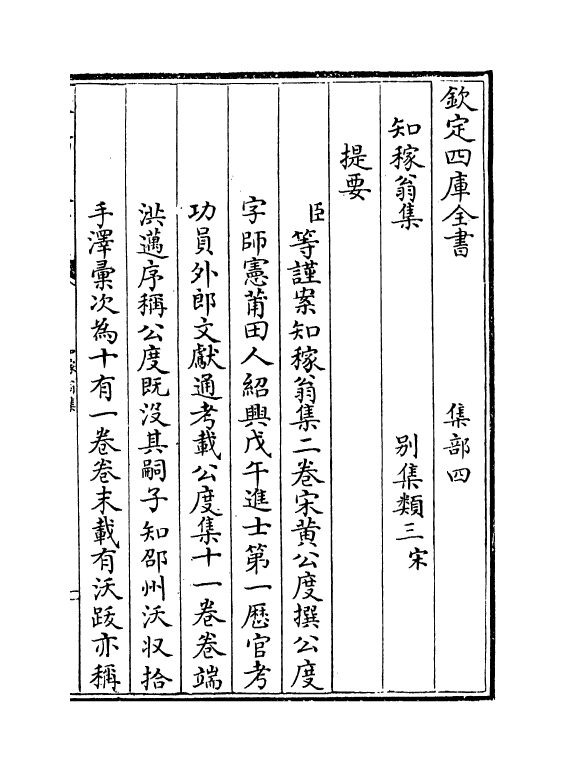 欽定四庫全書　集部四
知稼翁集　别集類三宋
提要
臣等謹案知稼翁集二卷宋黄公度撰公度
字師憲莆田人紹興戊午進士第一歴官考
功員外郎文獻通考載公度集十一卷卷端
洪邁序稱公度既沒其嗣子知邵州沃収拾
手澤彚次為十有一卷卷末載有沃跋亦稱
知稼翁集